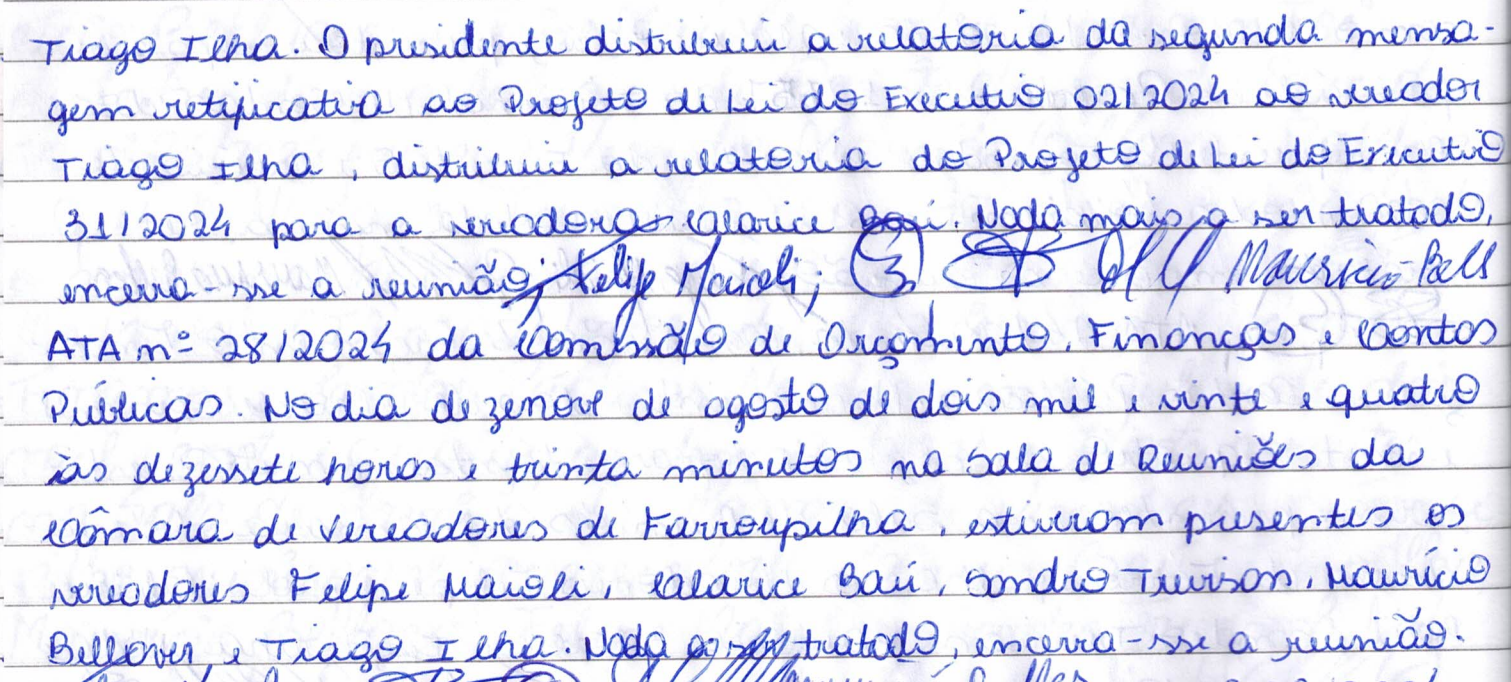 Tiago Ilha. O presidente distribuiu a relatoria da segunda mensa-
gem retificativa ao Projeto de Lei do Executivo 02/2024 ao vereador
Tiago Ilha, distribuiu a relatoria do Projeto de Lei do Executivo
31/2024 para a vereadora Clarice Baú. Nada mais a ser tratado,
encerra-se a reunião; Felipe Maioli; Mauricio Bell
ATA nº 28/2024 da Comissão de Orçamento, Finanças e Contos
Públicas. No dia dezenove de agosto de dois mil e vinte e quatro
às dezessete horas e trinta minutos na Sala de Reuniões da
Câmara de Vereadores de Farroupilha, estiveram presentes os
vereadores Felipe Maioli, Clarice Baú, Sandro Trevisan, Maurício
Bellaver, e Tiago Ilha. Nada a ser tratado, encerra-se a reunião.